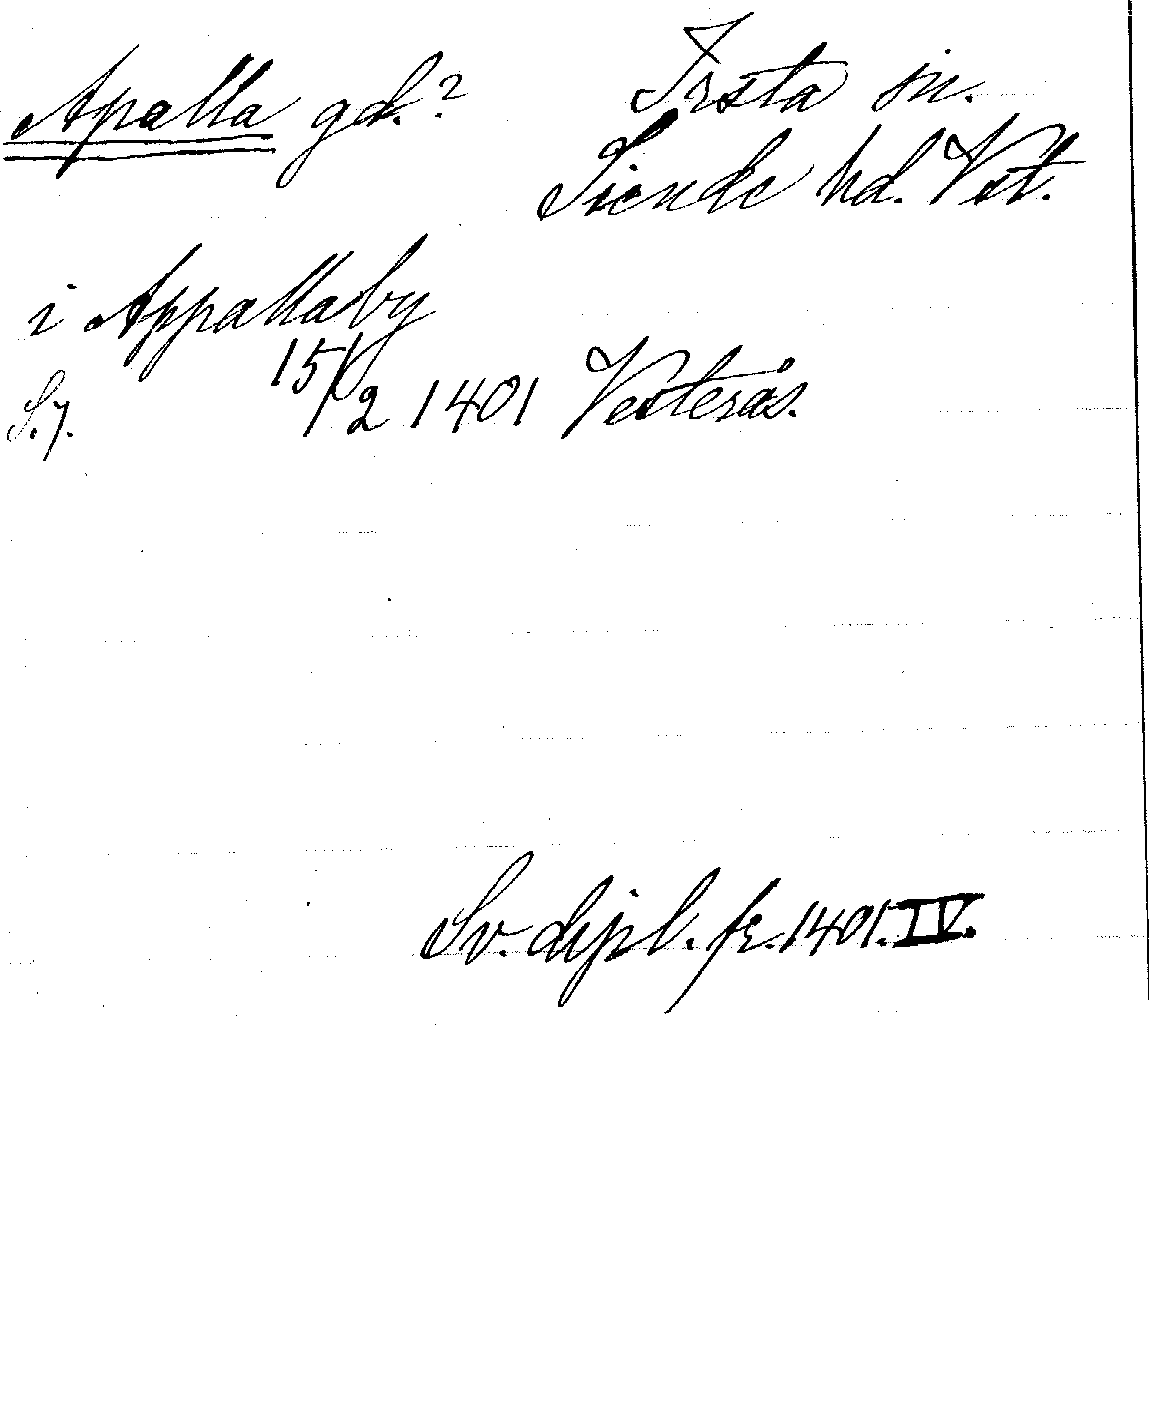 Apalla gd.? Irsta sn.
Siende hd. Vst.
i Appallaby
15/2 1401 Vesterås.
S.7.
Sv. dipl. fr. 1401. IV.